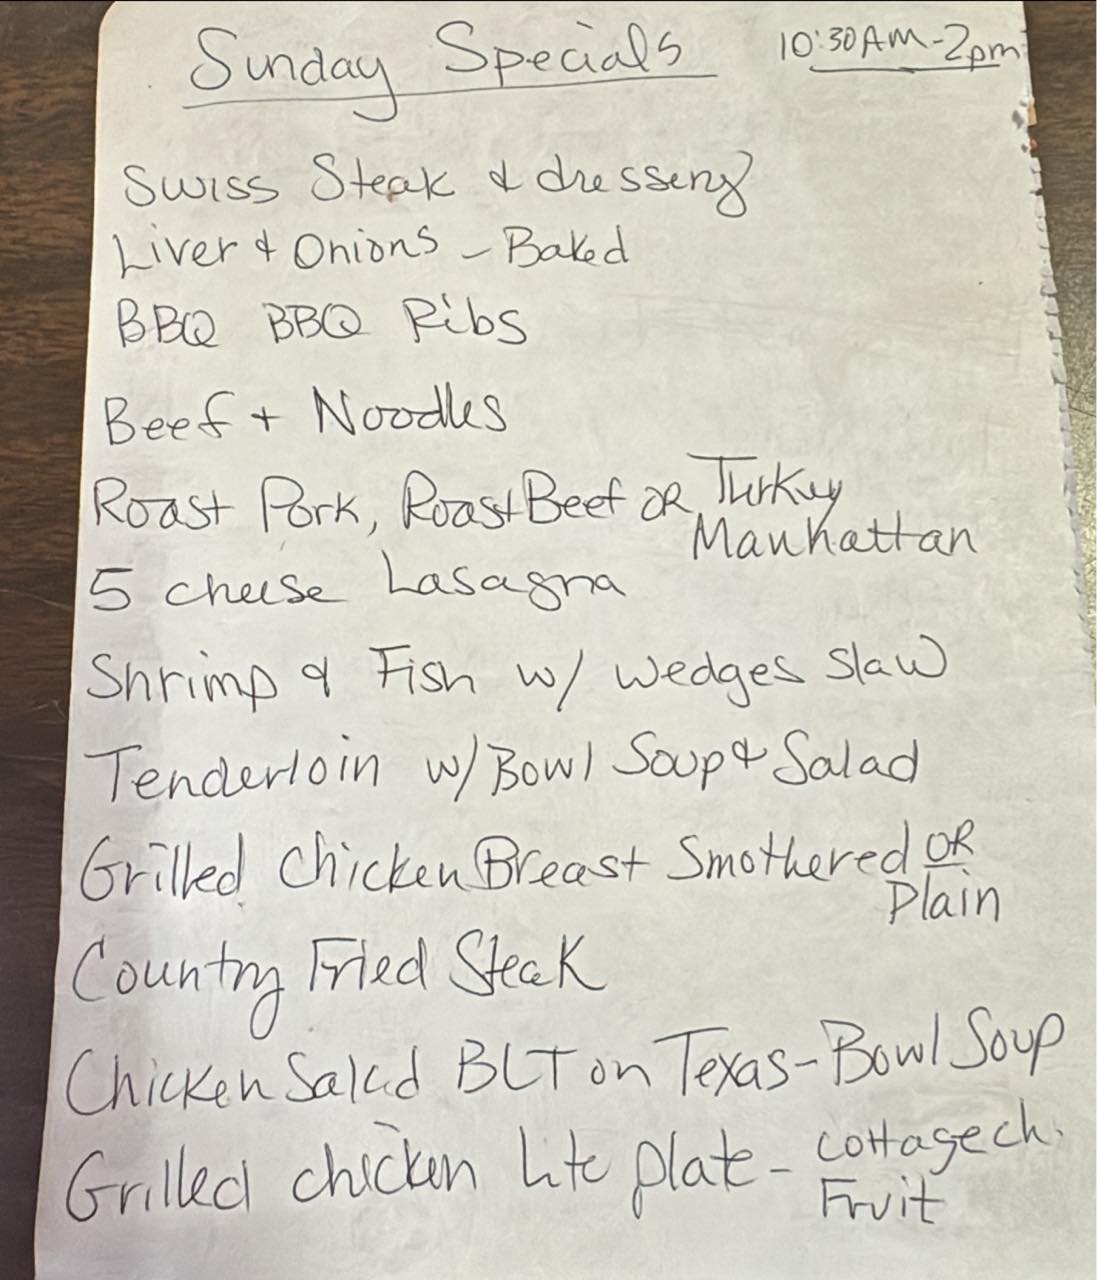 Sunday Specials 10:30AM-2pm
Swiss Steak & dressing
Liver & Onions - Baked
BBQ BBQ Ribs
Beef + Noodles
Roast Pork, Roast Beef OR Turkey
Manhattan
5 cheese Lasagna
Shrimp & Fish w/ wedges slaw
Tenderloin w/ Bowl Soup & Salad
Grilled Chicken Breast Smothered OR
Plain
Country Fried Steak
Chicken Salad BLT on Texas - Bowl Soup
Grilled chicken Lite plate - cottage ch.
Fruit